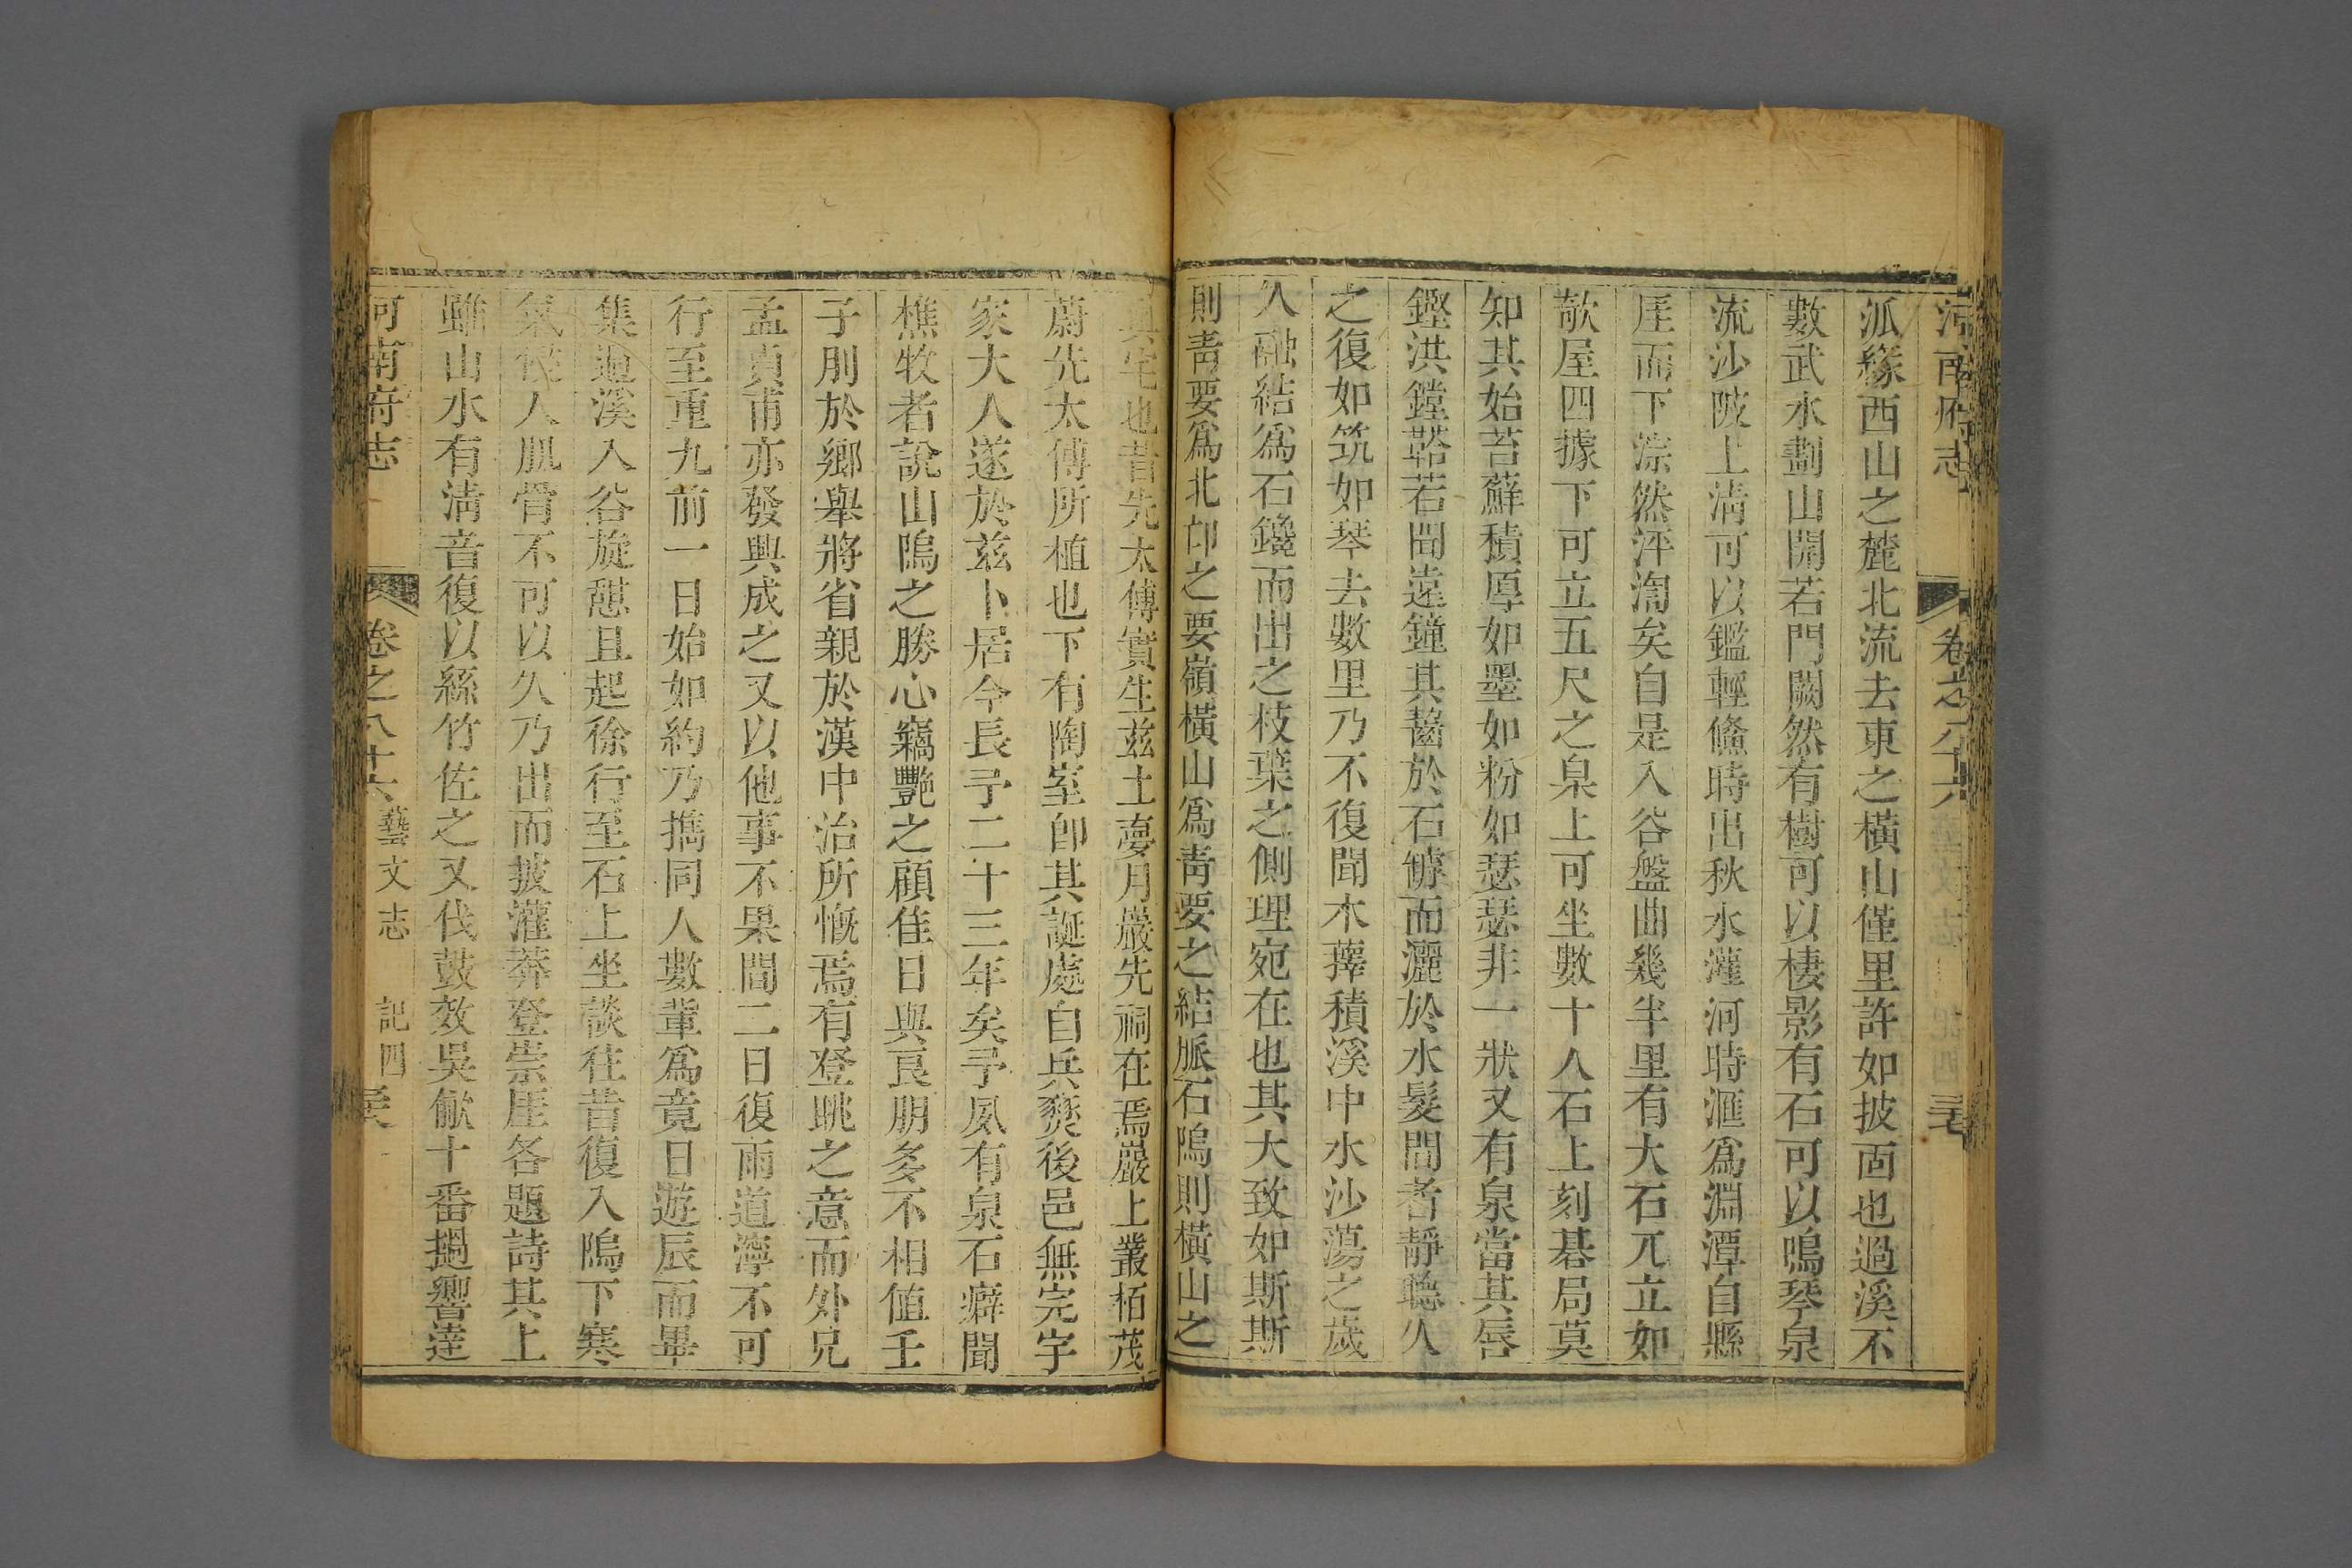 河南府志 卷之八十六
派緣西山之麓北流去東之橫山僅里許如披而也過溪不
數武水劃山開若門闕然有樹可以棲影有石可以鳴琴泉
流沙陂上淸可以鑑輕鯈時出秋水灌河時滙爲淵潭自縣
厓而下淙然泙淘矣自是入谷盤曲幾半里有大石兀立如
欹屋四據下可立五尺之臬上可坐數十人石上刻碁局莫
知其始苔蘚積厚如墨如粉如瑟瑟非一狀又有泉當其唇
鏗洪鏜鞳若聞遠鐘其齧於石罅而灑於水髮間者靜聽久
之復如筑如琴去數里乃不復聞木蘀積溪中水沙蕩之歲
久融結爲石鑱而出之枝葉之側理宛在也其大致如斯斯
則靑要爲北邙之要嶺橫山爲靑要之結脈石隖則橫山之
眞宅也昔先太傅實生兹土夢月巖先祠在焉巖上叢栢茂
蔚先太傅所植也下有陶室卽其誕處自兵燹後邑無完宇
家大人遂於兹卜居今長予二十三年矣予夙有泉石癖聞
樵牧者說山隖之勝心竊艷之顧佳日與良朋多不相値壬
子刖於鄉舉將省親於漢中治所慨焉有登眺之意而外兄
孟貢甫亦發興成之又以他事不果間二日復雨道濘不可
行至重九前一日始如約乃擕同人數輩爲竟日遊辰而畢
集過溪入谷旋憇且起徐行至石上坐談往昔復入隖下寒
氣侵人肌骨不可以久乃出而披灌莽登崇厓各題詩其上
雖山水有淸音復以絲竹佐之又伐鼓效吳歈十番撾響達
河南府志 卷之八十六 藝文志 記四